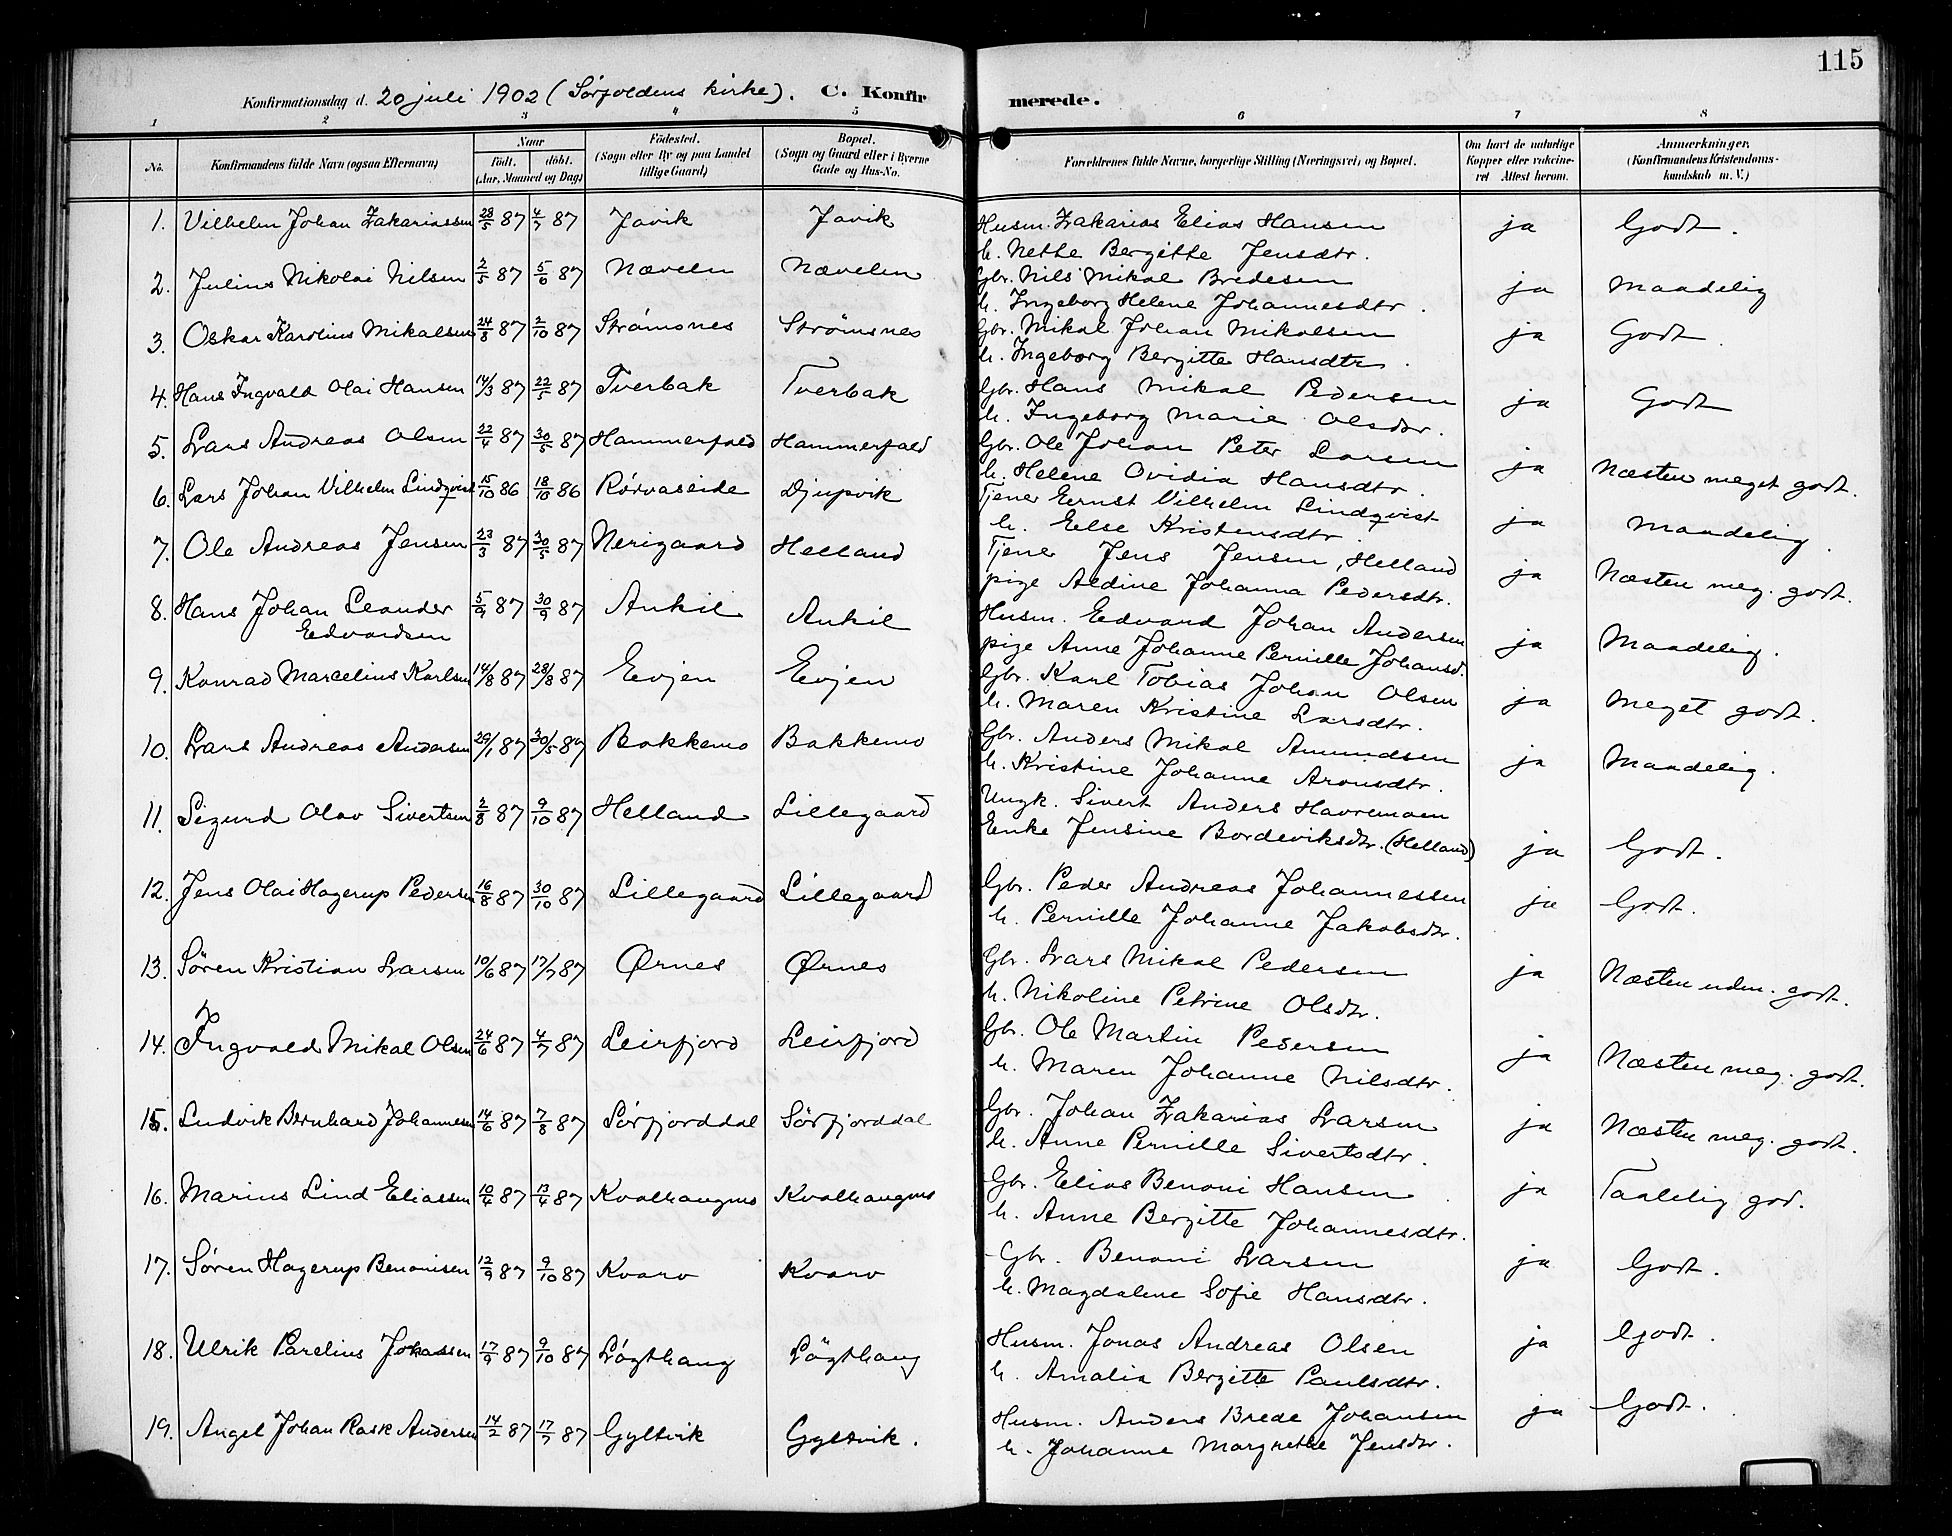 115
Konfirmationsdag d. 20 juli 1902 (Sørfoldens kirke). C. Konfirmerede.
1 2 3 4 5 6 7 8
No. Konfirmandens fulde Navn (ogsaa Efternavn) Naar født. døbt. (Aar, Maaned og Dag) Fødested. (Sogn eller By og paa Landet tillige Gaard) Bopæl. (Sogn og Gaard eller i Byerne Gade og Hus-No. Forældrenes fulde Navne, borgerlige Stilling (Næringsvei) og Bopæl. Om havt de naturlige Kopper eller vakcineret Attest herom. Anmærkninger. (Konfirmandens Kristendomskundskab m. V.)
1. Vilhelm Johan Zakariassen 28/5 87 4/7 87 Javik Javik Husm. Zakarias Elias Hansen ja Godt.
h. Nette Bergitte Jensdtr.
2. Julius Nikolai Nilsen 2/5 87 5/6 87 Nævelen Nævelen Gbr. Nils Mikal Bredesen ja Maadelig
h. Ingeborg Helene Johannesdtr.
3. Oskar Karolius Mikalsen 24/8 87 2/10 87 Strømsnes Strømsnes Gbr. Mikal Johan Mikalsen ja Godt.
h. Ingeborg Bergitte Hansdtr.
4. Hans Ingvald Olai Hansen 14/3 87 22/5 87 Tverbak Tverbak Gbr. Hans Mikal Pedersen ja Godt
h. Ingeborg Marie Olsdtr.
5. Lars Andreas Olsen 22/4 87 30/5 87 Hammerfald Hammerfald Gbr. Ole Johan Peter Larsen ja Næsten meget godt.
h. Helene Ovidia Hansdtr.
6. Lars Johan Vilhelm Lindqvist 15/10 86 18/10 86 Rørvaseide Djupvik Tjener Ernst Vilhelm Lindqvist ja Maadelig.
h. Else Kristensdtr.
7. Ole Andreas Jensen 23/3 87 30/5 87 Nerigaard Helland Tjener Jens Jensen, Helland ja Næsten meg. godt.
pige Aldine Johanna Pedersdtr.
8. Hans Johan Leander Edvardsen 5/9 87 30/9 87 Ankil Ankil Husm. Edvard Johan Andersen ja Maadelig.
pige Anne Johanne Pernille Johansd.
9. Konrad Marcelius Karlsen 14/8 87 28/8 87 Evjen Evjen Gbr. Karl Tobias Johan Olsen ja Meget godt.
h. Maren Kristine Larsdtr.
10. Lars Andreas Andersen 29/1 87 30/5 87 Bakkemo Bakkemo Gbr. Anders Mikal Amundsen ja Maadelig.
h. Kristine Johanne Aronsdtr.
11. Sigurd Olav Sivertsen 2/8 87 9/10 87 Helland Lillegaard Ungk. Sivert Anders Havremoen
Enke Jensine Bordeviksdtr. (Helland) ja Godt.
12. Jens Olai Hagerup Pedersen 16/8 87 30/10 87 Lillegaard Lillegaard Gbr. Peder Andreas Johannessen ja Godt.
h. Pernille Johanne Jakobsdtr.
13. Søren Kristian Larsen 10/6 87 17/7 87 Ørnes Ørnes Gbr. Lars Mikal Pedersen ja Næsten udm. godt.
h. Nikoline Petrine Olsdtr.
14. Ingvald Mikal Olsen 24/6 87 4/7 87 Leirfjord Leirfjord Gbr. Ole Martin Pedersen ja Næsten meg. godt.
h. Maren Johanne Nilsdtr.
15. Ludvik Bernhard Johannesen 14/6 87 7/8 87 Sørfjorddal Sørfjorddal Gbr. Johan Zakarias Larsen ja Næsten meg. godt.
h. Anne Pernille Sivertsdtr.
16. Marius Lind Eliassen 10/4 87 13/4 87 Kvalhaugnes Kvalhaugnes Gbr. Elias Benoni Hansen ja Taalelig god.
h. Anne Bergitte Johannesdtr.
17. Søren Hagerup Benonisen 12/9 87 9/10 87 Kvarv Kvarv Gbr. Benoni Larsen ja Godt.
h. Magdalene Sofie Hansdtr.
18. Ulrik Parelius Jonassen 17/9 87 9/10 87 Løgthaug Løgthaug Husm. Jonas Andreas Olsen ja Godt.
h. Amalia Bergitte Paulsdtr.
19. Angel Johan Rask Andersen 14/2 87 17/7 87 Gyltvik Gyltvik. Husm. Anders Brede Johansen ja Godt.
h. Johanne Margrethe Jensdtr.